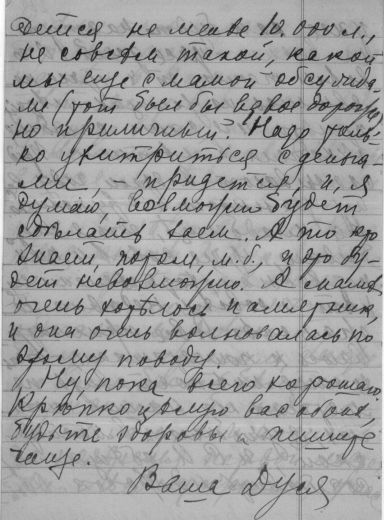 дется не менее 10.000 л.,
не совсем такой, какой
мы еще с мамой обсужда-
ли (тот был бы вдвое дороже)
но приличный. Надо толь-
ко ухитриться с деньга-
ми, – придется, и, я
думаю, возможно будет
сдѣлать заем. А то кто
знает, потом, м.б., и это бу-
дет невозможно. А маме
очень хотѣлось памятник,
и она очень волновалась по
этому поводу.
Ну, пока всего хорошаго.
Крѣпко цѣлую вас обоих,
будьте здоровы и пишите
чаще.
Ваша Дуся